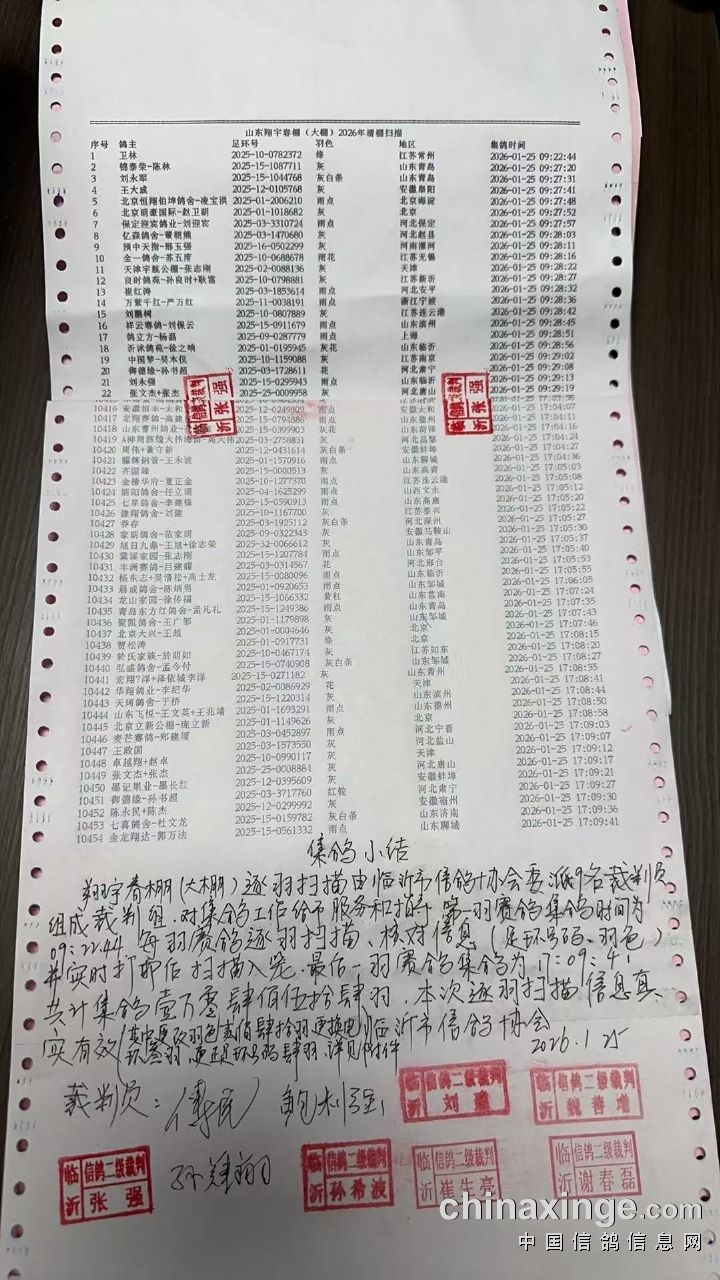 山东翔宇春棚（大棚）2026年清棚扫描
序号 鸽主 足环号 羽色 地区 集鸽时间
1 卫林 2025-10-0782372 绛 江苏常州 2026-01-25 09:22:44
2 锦泰荣-陈林 2025-15-1087711 灰 山东青岛 2026-01-25 09:27:20
3 刘永军 2025-15-1044768 灰白条 山东青岛 2026-01-25 09:27:31
4 王大威 2025-12-0105768 灰 安徽阜阳 2026-01-25 09:27:41
5 北京恒翔伯坤鸽舍-凌宝洪 2025-01-2006210 雨点 北京海淀 2026-01-25 09:27:48
6 北京明豪国际-赵卫明 2025-01-1018682 灰 北京 2026-01-25 09:27:52
7 保定迎宾鸽业-刘迎宾 2025-03-3310724 雨点 河北保定 2026-01-25 09:27:57
8 亿淼鸽舍-董朝熊 2025-03-1470680 灰 河北赵县 2026-01-25 09:28:03
9 预中天指-郑玉强 2025-16-0502299 灰 河南漯河 2026-01-25 09:28:11
10 金一鸽舍-苏五库 2025-10-0688678 雨花 江苏无锡 2026-01-25 09:28:16
11 天津宇航公棚-张志刚 2025-02-0088136 灰 天津 2026-01-25 09:28:22
12 良时鸽苑-孙良时+耿雷 2025-10-0798881 灰 江苏新沂 2026-01-25 09:28:27
13 崔红涛 2025-03-1853614 雨点 河北安平 2026-01-25 09:28:32
14 万紫千红-严万红 2025-11-0038191 雨点 浙江宁波 2026-01-25 09:28:36
15 刘鹏树 2025-10-0807889 灰 江苏连云港 2026-01-25 09:28:42
16 祥云赛鸽-刘保云 2025-15-0911679 雨点 山东滨州 2026-01-25 09:28:45
17 鸽立方-杨磊 2025-09-0287779 雨点 上海 2026-01-25 09:28:51
18 沂泳鸽苑-徐之响 2025-01-0195945 灰花 山东临沂 2026-01-25 09:28:56
19 中国梦-吴本仪 2025-10-1159088 灰 江苏南京 2026-01-25 09:29:02
20 御德缘-孙书超 2025-03-1728611 花 河北肃宁 2026-01-25 09:29:08
21 刘永强 2025-15-0295943 雨点 山东临沂 2026-01-25 09:29:13
22 张文杰+张杰 雨点 河北唐山 2026-01-25 09:29:19
10416 安徽恒丰-太和 2025-12-0249809 雨点 安徽太和 2026-01-25 17:04:07
10417 龙翔赛鸽-高建 2025-15-0794886 雨点 山东德州 2026-01-25 17:04:16
10418 山东曹州鸽业 2025-15-0399903 灰花 山东菏泽 2026-01-25 17:04:24
10419 A神翔辉煌大伟 周大伟 2025-03-2758831 灰 河北昌黎 2026-01-25 17:04:27
10420 周伟+黄守新 2025-12-0431614 灰白条 安徽蚌埠 2026-01-25 17:04:36
10421 2025-01-1570916 雨点 山东聊城 2026-01-25 17:05:03
10422 齐国雄 2025-15-0000513 灰 山东高青 2026-01-25 17:05:08
10423 金榜华府-夏正金 2025-10-1277370 雨点 江苏连云港 2026-01-25 17:05:12
10424 明阳鸽舍-任立明 2025-04-1625299 雨点 山西文水 2026-01-25 17:05:20
10425 七星鸽舍-李建锋 2025-15-0590913 雨点 山东高唐 2026-01-25 17:05:22
10426 建翔鸽舍-刘建 2025-10-1167700 灰 江苏泰兴 2026-01-25 17:05:27
10427 乔存 2025-03-1925112 灰白条 河北深州 2026-01-25 17:05:30
10428 家明鸽舍-范家明 2025-09-0322343 灰 安徽马鞍山 2026-01-25 17:05:37
10429 旭日九鼎-王旭+徐志荣 2025-32-0066612 灰 山东青岛 2026-01-25 17:05:40
10430 棠溪家园-张志刚 2025-15-1207784 雨点 山东邹平 2026-01-25 17:05:53
10431 丰洲赛鸽-吕建耀 2025-03-0314567 花 河北邢台 2026-01-25 17:05:55
10432 杨东志+吴清松+高士龙 2025-15-0080096 雨点 山东临沂 2026-01-25 17:06:05
10433 晨成鸽舍-陈炳男 2025-01-0920653 雨点 山东邹城 2026-01-25 17:07:24
10434 龙山家园-徐传福 2025-15-1066332 黄杠 山东莒南 2026-01-25 17:07:35
10435 青岛东方红鸽舍-孟凡礼 2025-15-1249386 雨点 山东青岛 2026-01-25 17:07:43
10436 聚凯鸽舍-王广邹 2025-01-1179898 灰 山东邹城 2026-01-25 17:07:46
10437 北京大兴-王超 2025-01-0004646 灰 北京 2026-01-25 17:08:15
10438 贾松涛 2025-01-0917731 绛 北京 2026-01-25 17:08:20
10439 於氏家族-於明如 2025-10-0467174 灰 江苏如东 2026-01-25 17:08:27
10440 弘盛鸽舍-孟令付 2025-15-0740908 灰白条 山东邹城 2026-01-25 17:08:35
10441 宏翔7洋+泽依城李洋 2025-15-0271182 灰 山东青州 2026-01-25 17:08:41
10442 华翔鸽业-李纪华 2025-02-0086929 花 天津 2026-01-25 17:08:44
10443 天珂鸽舍-于桥 2025-15-1220314 灰 山东滨州 2026-01-25 17:08:50
10444 山东飞恒-王文英+王兆靖 2025-01-1693291 雨点 山东德州 2026-01-25 17:08:58
10445 北京立新公棚-庞立新 2025-01-1149626 灰 北京 2026-01-25 17:09:03
10446 麦芒赛鸽-郑建须 2025-03-0452897 雨点 河北宁晋 2026-01-25 17:09:07
10447 王政国 2025-03-1573550 灰 河北盐山 2026-01-25 17:09:12
10448 卓越翔+赵卓 2025-10-0990117 灰 天津 2026-01-25 17:09:17
10449 张文杰+张杰 2025-25-0008884 灰 河北唐山 2026-01-25 17:09:21
10450 墨记果业-墨长红 2025-12-0395609 灰 安徽蚌埠 2026-01-25 17:09:27
10451 御德缘-孙书超 2025-03-3717760 红轮 河北肃宁 2026-01-25 17:09:30
10452 陈永民+陈杰 2025-12-0299992 灰 安徽宿州 2026-01-25 17:09:36
10453 七喜鸽舍-杜文龙 2025-15-0159782 灰白条 山东济南 2026-01-25 17:09:41
10454 金龙翔达-郭万法 2025-15-0561332 雨点 山东聊城
临沂 信鸽二级裁判 张强
临沂 信鸽二级裁判 张强
集鸽小结
翔宇春棚（大棚）逐羽扫描由临沂市信鸽协会委派9名裁判员
组成裁判组，对集鸽工作给予服务和指导，第一羽赛鸽集鸽时间为
09:22:44 每羽赛鸽逐羽扫描、核对信息（足环号码、羽色）
并实时打印后扫描入笼，最后一羽赛鸽集鸽为17:09:41
共计集鸽壹万零肆佰伍拾肆羽，本次逐羽扫描信息真
实有效（其中更改羽色 佰肆拾羽，更换电
环 羽，更正足环号码肆羽，详见附件）
临沂市信鸽协会
2026.1.25
裁判员：
临沂 信鸽二级裁判 刘
临沂 信鸽二级裁判 魏善增
临沂 信鸽二级裁判 张强
临沂 信鸽二级裁判 孙希波
临沂 信鸽二级裁判 崔生亮
临沂 信鸽二级裁判 谢春磊
chinaxinge.com
中国信鸽信息网